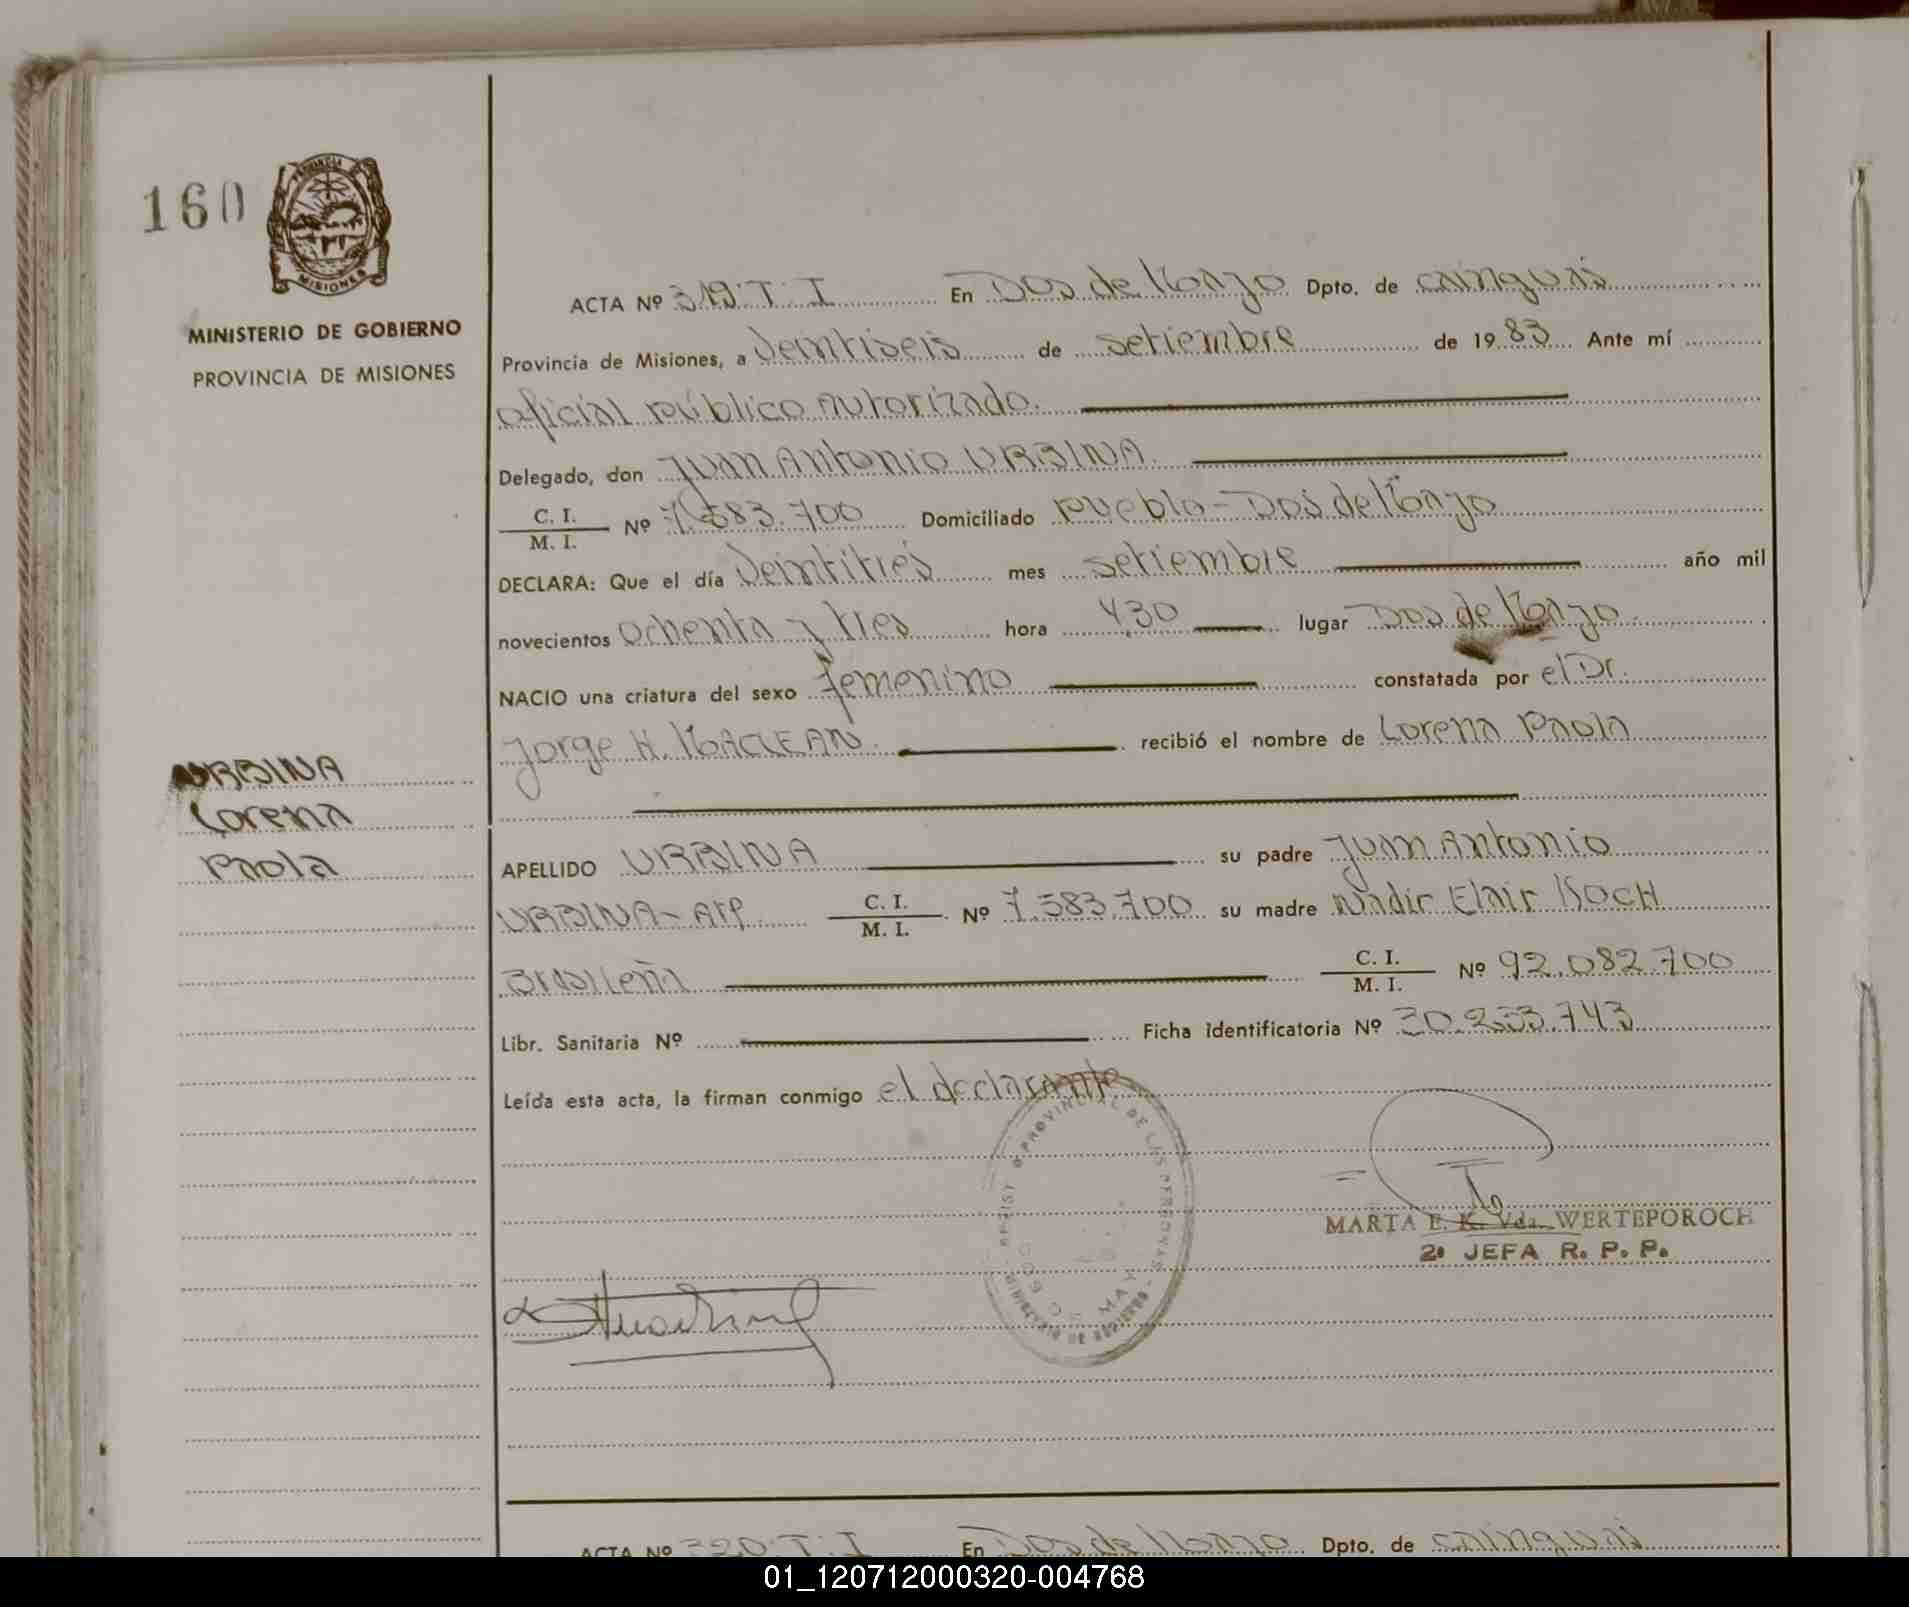 160
PROVINCIA
MISIONES
MINISTERIO DE GOBIERNO
PROVINCIA DE MISIONES
ACTA Nº 319. T. I En Dos de Mayo Dpto. de cainguás
Provincia de Misiones, a veintiseis de setiembre de 19 83 Ante mí
oficial público autorizado.
Delegado, don Juan Antonio URBINA.
C. I.
M. I. Nº 7.583.700 Domiciliado pueblo - Dos de Mayo
DECLARA: Que el día veintitrés mes setiembre año mil
novecientos ochenta y tres hora 4,30 lugar Dos de Mayo
NACIO una criatura del sexo femenino constatada por el Dr.
Jorge H. MACLEAN. recibió el nombre de Lorena Paola
URBINA
Lorena
Paola
APELLIDO URBINA su padre Juan Antonio
URBINA - Arg. C. I.
M. I. Nº 7.583.700 su madre Nadir Elair KOCH
Brasileña C. I.
M. I. Nº 92.082.700
Libr. Sanitaria Nº Ficha identificatoria Nº 30.233.743
Leída esta acta, la firman conmigo el declarante
PROVINCIAL DE LAS PERSONAS
MARTA E. K. Vda. WERTEPOROCH
2ª JEFA R. P. P.
ACTA Nº 320. T. I En Dos de Mayo Dpto. de cainguás
01_120712000320-004768